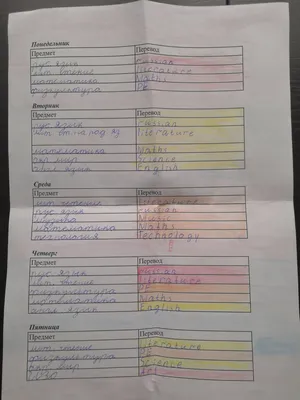 Понедельник
Предмет Перевод
рус язык russian
лит чтение literature
математика Maths
физкультура PE
Вторник
Предмет Перевод
рус язык russian
лит чт на род яз literature
математика Maths
окр мир Science
англ язык English
Среда
Предмет Перевод
лит чтение literature
рус язык russian
музыка Music
математика Maths
технология Technology
Четверг
Предмет Перевод
рус язык russian
лит чтение literature
физкультура PE
математика Maths
англ язык English
Пятница
Предмет Перевод
лит чтение literature
физкультура PE
окр мир Science
ИЗО Art